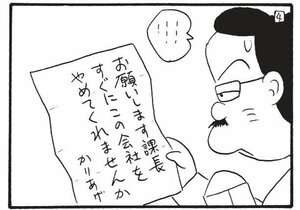 4
………
お願いします課長
すぐにこの会社を
やめてくれませんか
かりあげ